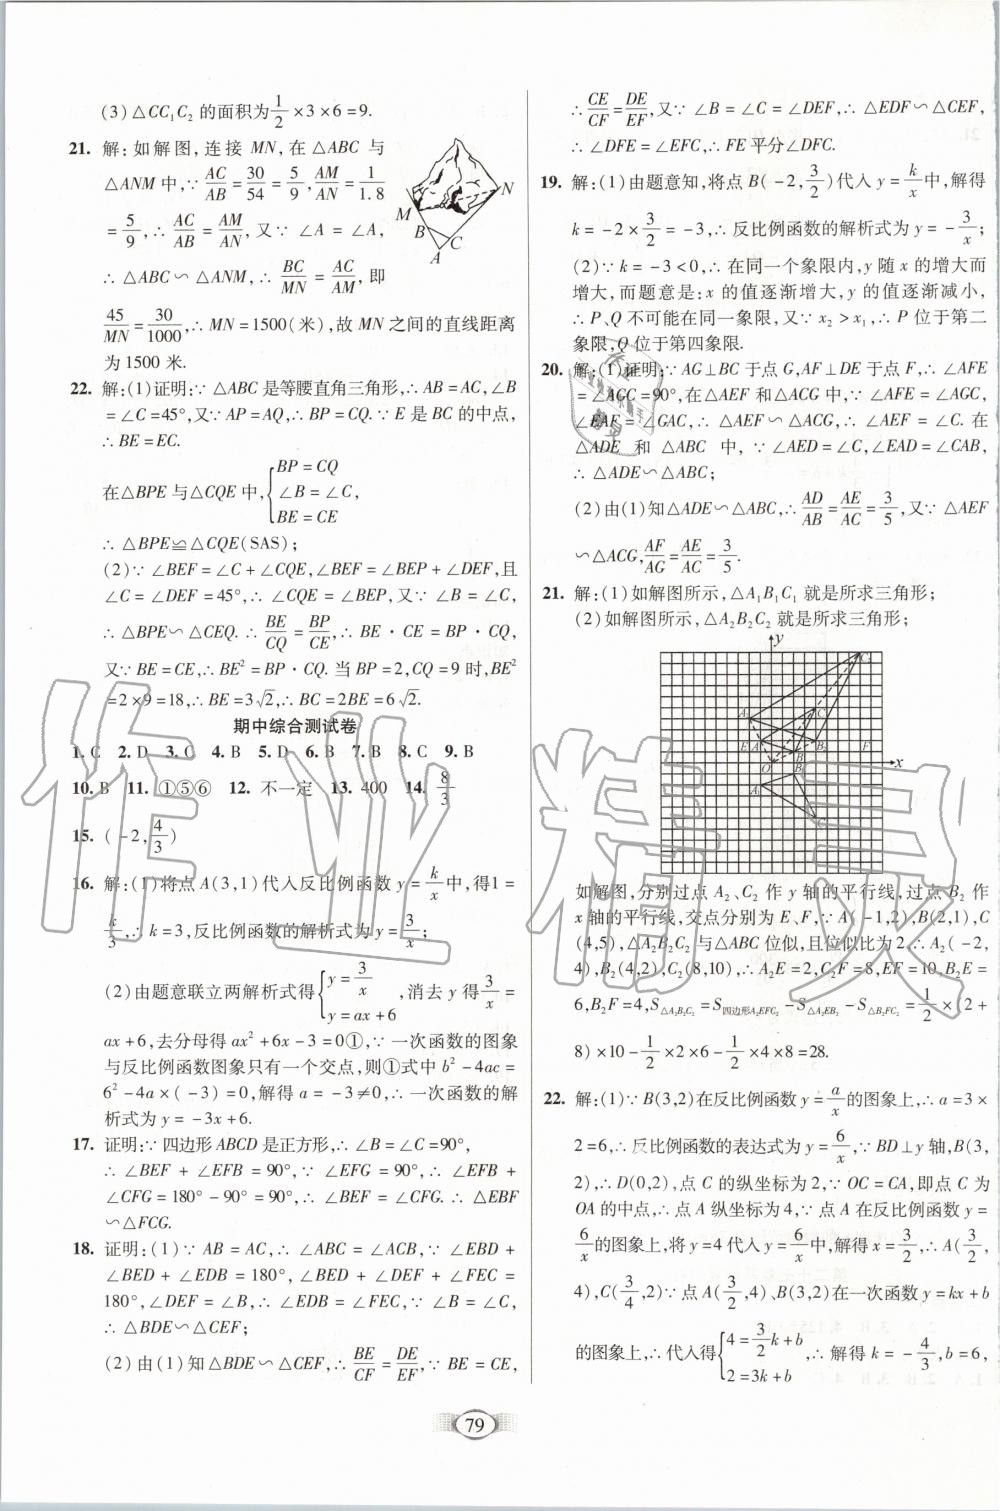 (3)△CC₁C₂ 的面积为1/2×3×6=9.
21. 解:如解图,连接 MN,在△ABC 与
△ANM 中,∵AC/AB=30/54=5/9,AM/AN=1/1.8
=5/9,∴AC/AB=AM/AN,又∵∠A=∠A,
∴△ABC∽△ANM,∴BC/MN=AC/AM,即
45/MN=30/1000,∴MN=1500(米),故 MN 之间的直线距离
为 1500 米.
M
N
B
C
A
22. 解:(1)证明:∵△ABC 是等腰直角三角形,∴AB=AC,∠B
=∠C=45°,又∵AP=AQ,∴BP=CQ.∵E 是 BC 的中点,
∴BE=EC.
在△BPE 与△CQE 中,{BP=CQ
∠B=∠C,
BE=CE
∴△BPE≌△CQE(SAS);
(2)∵∠BEF=∠C+∠CQE,∠BEF=∠BEP+∠DEF,且
∠C=∠DEF=45°,∴∠CQE=∠BEP,又∵∠B=∠C,
∴△BPE∽△CEQ.∴BE/CQ=BP/CE,∴BE·CE=BP·CQ,
又∵BE=CE,∴BE²=BP·CQ.当 BP=2,CQ=9 时,BE²
=2×9=18,∴BE=3√2,∴BC=2BE=6√2.
期中综合测试卷
1. C 2. D 3. C 4. B 5. D 6. B 7. B 8. C 9. B
10. B 11. ①⑤⑥ 12. 不一定 13. 400 14. 8/3
15. (-2,4/3)
16. 解:(1)将点 A(3,1)代入反比例函数 y=k/x中,得1=
k/3,∴k=3,反比例函数的解析式为 y=3/x;
(2)由题意联立两解析式得{y=3/x
y=ax+6,消去 y 得3/x=
ax+6,去分母得 ax²+6x-3=0①,∵一次函数的图象
与反比例函数图象只有一个交点,则①式中 b²-4ac=
6²-4a×(-3)=0,解得 a=-3≠0,∴一次函数的解
析式为 y=-3x+6.
17. 证明:∵四边形 ABCD 是正方形,∴∠B=∠C=90°,
∴∠BEF+∠EFB=90°,∵∠EFG=90°,∴∠EFB+
∠CFG=180°-90°=90°,∴∠BEF=∠CFG.∴△EBF
∽△FCG.
18. 证明:(1)∵AB=AC,∴∠ABC=∠ACB,∵∠EBD+
∠BED+∠EDB=180°,∠BED+∠DEF+∠FEC=
180°,∠DEF=∠B,∴∠EDB=∠FEC,∵∠B=∠C,
∴△BDE∽△CEF;
(2)由(1)知△BDE∽△CEF,∴BE/CF=DE/EF,∵BE=CE,
∴CE/CF=DE/EF,又∵∠B=∠C=∠DEF,∴△EDF∽△CEF,
∴∠DFE=∠EFC,∴FE 平分∠DFC.
19. 解:(1)由题意知,将点 B(-2,3/2)代入 y=k/x中,解得
k=-2×3/2=-3,∴反比例函数的解析式为 y=-3/x;
(2)∵k=-3<0,∴在同一个象限内,y 随 x 的增大而
增大,而题意是:x 的值逐渐增大,y 的值逐渐减小,
∴P、Q 不可能在同一象限,又∵x₂>x₁,∴P 位于第二
象限,Q 位于第四象限.
20. 解:(1)证明:∵AG⊥BC 于点 G,AF⊥DE 于点 F,∴∠AFE
=∠AGC=90°,在△AEF 和△ACG 中,∵∠AFE=∠AGC,
∠EAF=∠GAC,∴△AEF∽△ACG,∴∠AEF=∠C.在
△ADE 和△ABC 中,∵∠AED=∠C,∠EAD=∠CAB,
∴△ADE∽△ABC;
(2)由(1)知△ADE∽△ABC,∴AD/AB=AE/AC=3/5,又∵△AEF
∽△ACG,AF/AG=AE/AC=3/5.
21. 解:(1)如解图所示,△A₁B₁C₁ 就是所求三角形;
(2)如解图所示,△A₂B₂C₂ 就是所求三角形;
y
C₂
A₂
C
E
A
B₂
F
B
O
B₁
x
A₁
C₁
如解图,分别过点 A₂、C₂ 作 y 轴的平行线,过点 B₂ 作
x 轴的平行线,交点分别为 E、F,∵A(-1,2),B(2,1),C
(4,5),△A₂B₂C₂ 与△ABC 位似,且位似比为 2∴A₂(-2,
4),B₂(4,2),C₂(8,10),∴A₂E=2,C₂F=8,EF=10,B₂E=
6,B₂F=4,S△A₂B₂C₂=S四边形A₂EFC₂-S△A₂EB₂-S△B₂FC₂=1/2×(2+
8)×10-1/2×2×6-1/2×4×8=28.
22. 解:(1)∵B(3,2)在反比例函数 y=a/x的图象上,∴a=3×
2=6,∴反比例函数的表达式为 y=6/x,∵BD⊥y 轴,B(3,
2),∴D(0,2),点 C 的纵坐标为 2,∵OC=CA,即点 C 为
OA 的中点,∴点 A 纵坐标为 4,∵点 A 在反比例函数 y=
6/x的图象上,将 y=4 代入 y=6/x中,解得 x=3/2,∴A(3/2,
4),C(3/4,2)∵点 A(3/2,4)、B(3,2)在一次函数 y=kx+b
的图象上,∴代入得{4=3/2k+b
2=3k+b,∴解得 k=-4/3,b=6,
79
作业精灵